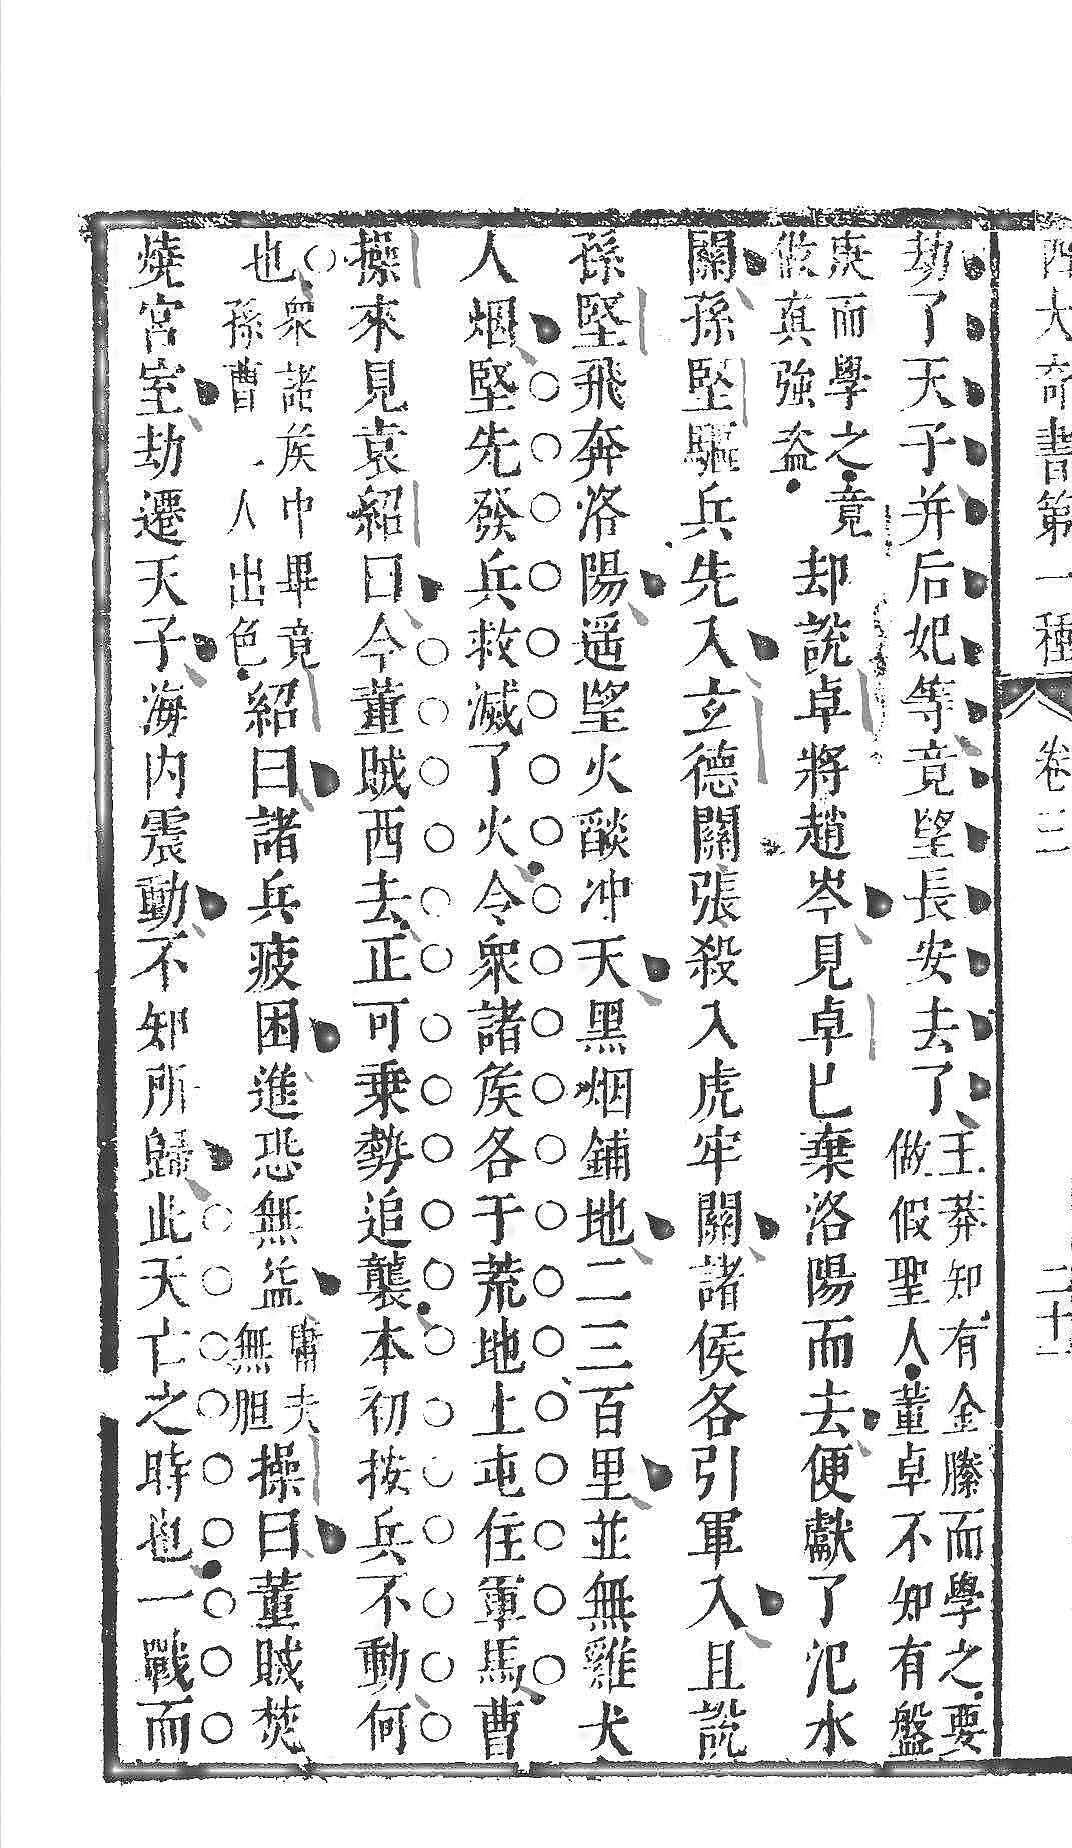 四大奇書第一種 卷三 二十一
劫了天子并后妃等竟望長安去了王莽知有金縢而學之要做假聖人董卓不知有盤
庚而學之竟做真強盜却說卓將趙岑見卓已棄洛陽而去便獻了汜水
關孫堅驅兵先入玄德關張殺入虎牢關諸侯各引軍入且說
孫堅飛奔洛陽遥望火燄冲天黑烟鋪地二三百里並無雞犬
人烟堅先發兵救滅了火令衆諸矦各于荒地上屯住軍馬曹
操來見袁紹曰今董賊西去正可乗勢追襲本初按兵不動何
也衆諸矦中畢竟孫曹二人出色紹曰諸兵疲困進恐無益庸夫無胆操曰董賊焚
燒宮室劫遷天子海内震動不知所歸此天亡之時也一戰而